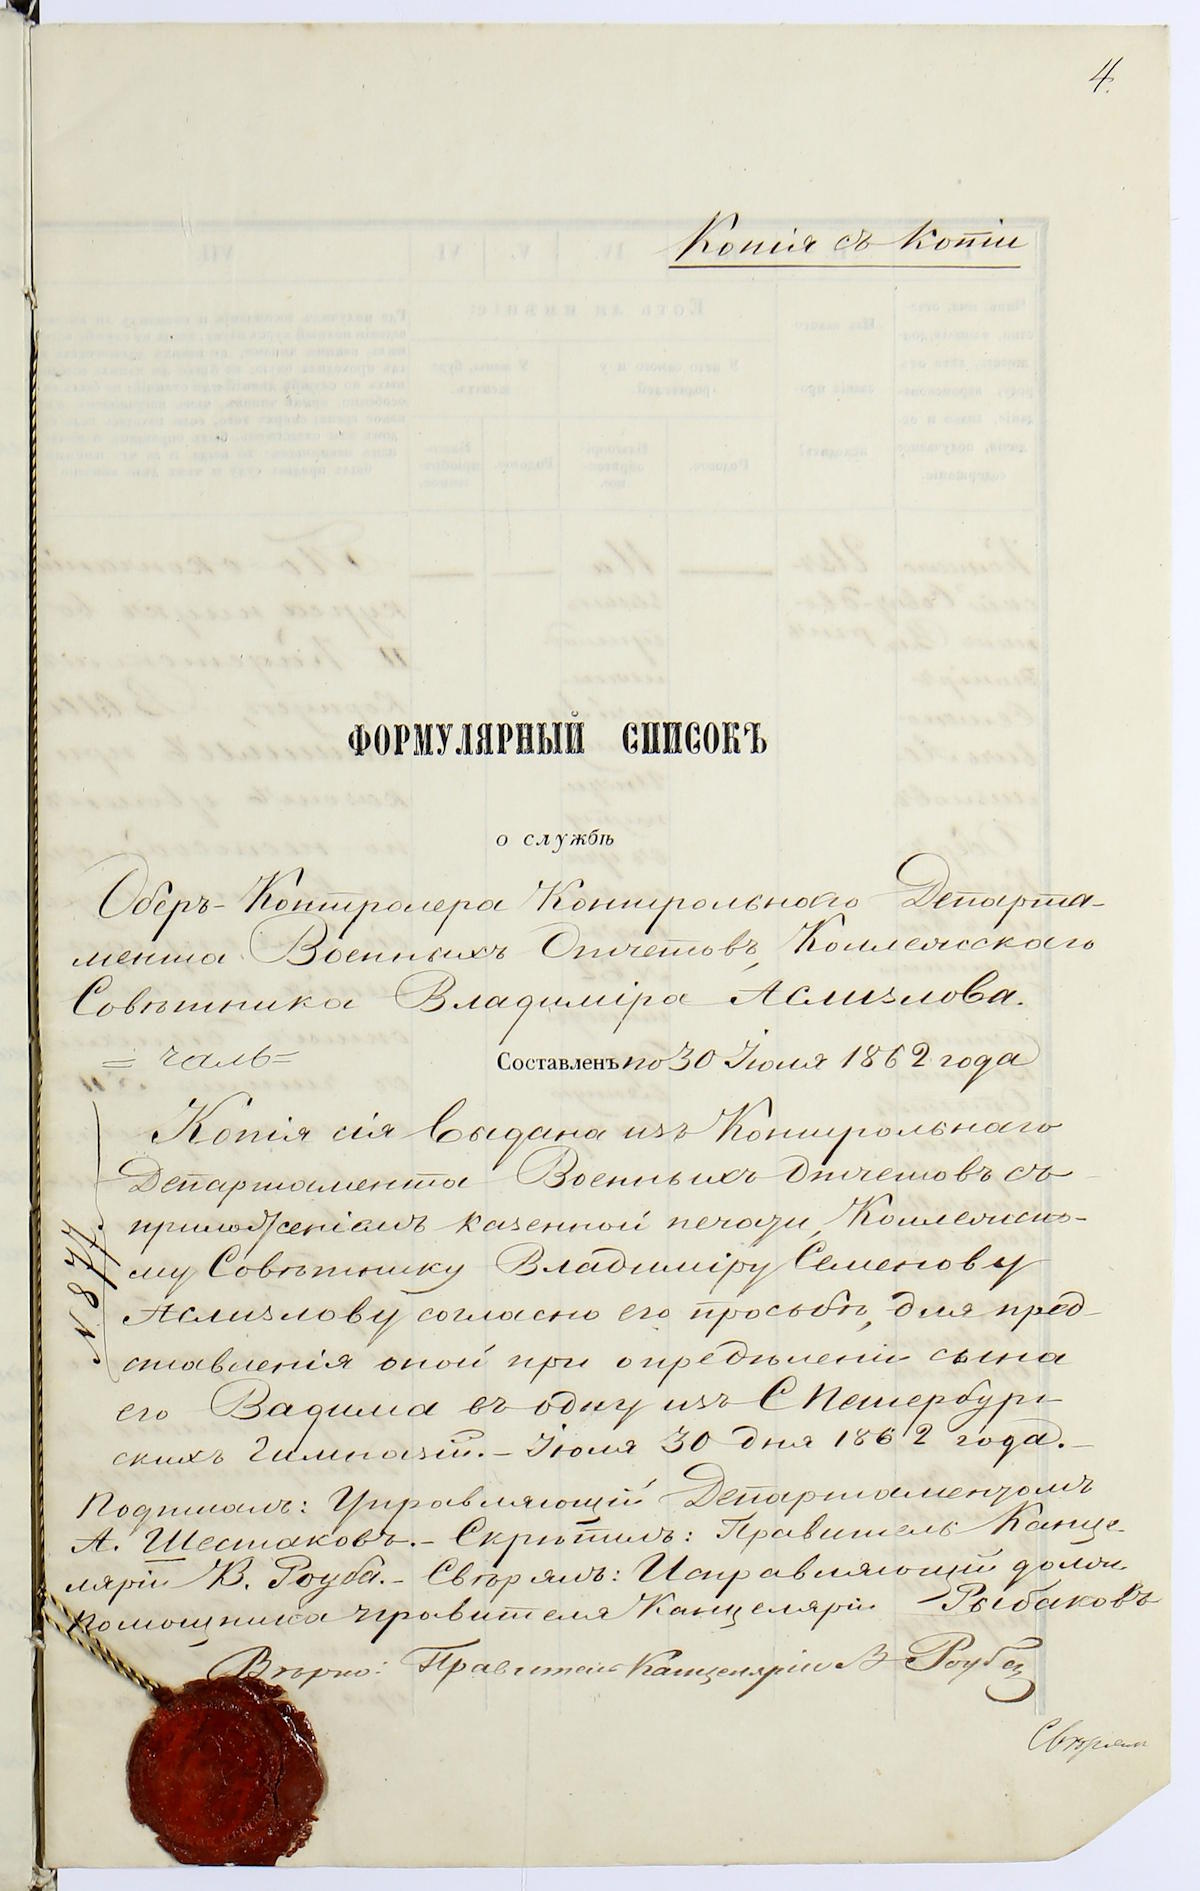 4.
Копія съ копіи
ФОРМУЛЯРНЫЙ СПИСОКЪ
о службѣ
Оберъ-Контролера Контрольнаго Департа-
мента Военныхъ Отчетовъ, Коллежскаго
Совѣтника Владиміра Асмилова.
Составленъ по 30 Іюля 1862 года
Копія сія выдана изъ Контрольнаго
Департамента Военныхъ Отчетовъ съ
приложеніемъ казенной печати, Коллежско-
му Совѣтнику Владиміру Семенову
Асмилову согласно его просьбѣ, для пред-
ставленія оной при опредѣленіи сына
его Вадима въ одну изъ С Петербург-
скихъ Гимназій. – Іюля 30 дня 1862 года. –
Подписалъ: Управляющій Департаментомъ
А. Шестаковъ. – Скрѣпилъ: Правитель Канце-
ляріи В. Роуба. – Свѣрялъ: Исправляющій должн.
Помощника правителя Канцеляріи Рыбаковъ
Вѣрно: Правитель Канцеляріи В Роуба
Свѣрялъ
N. 877.